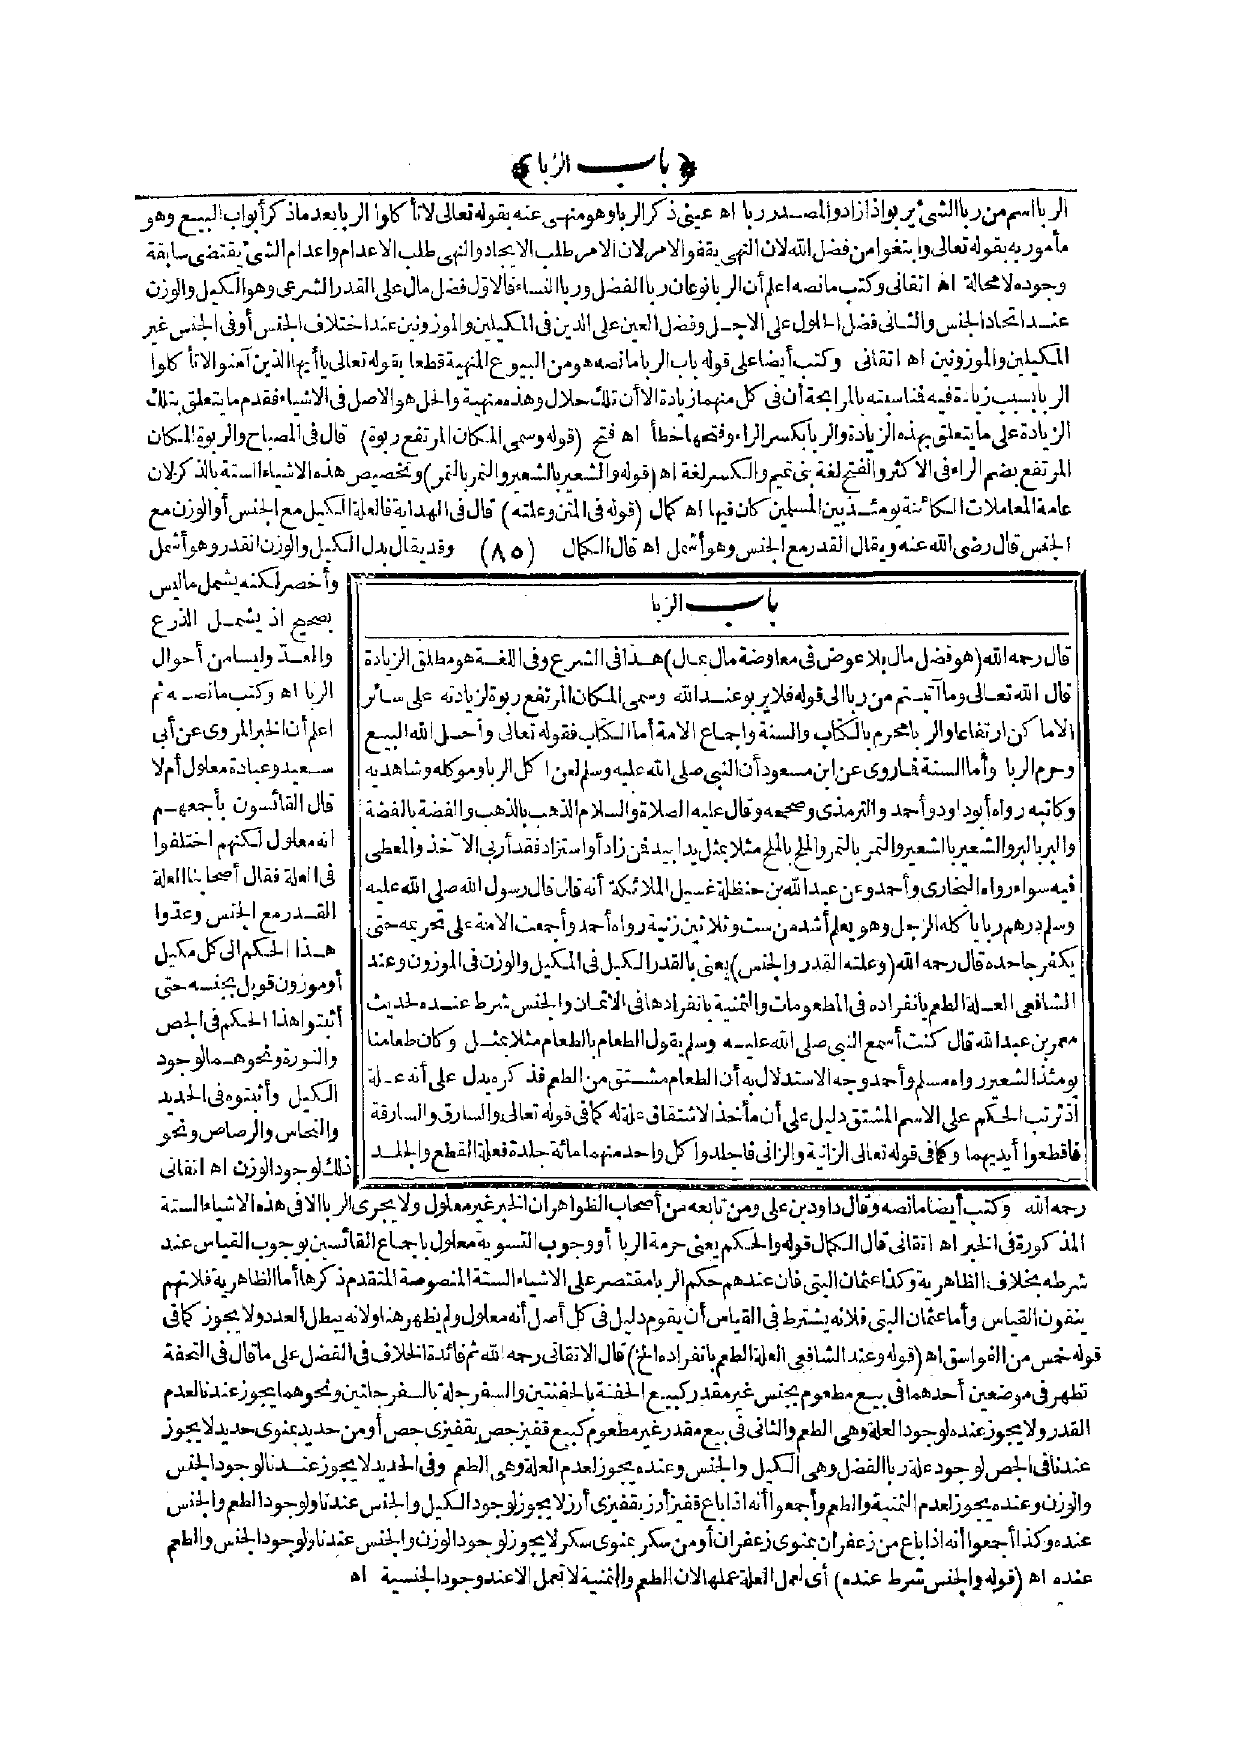 ﴿ باب الربا ﴾
الربا اسم من ربا الشئ يربو اذا زاد والمصدر ربا اه عينى ذكر الربا وهو منهى عنه بقوله تعالى لا تأكلوا الربا بعد ماذكر أبواب البيع وهو
مأمور به بقوله تعالى وابتغوا من فضل الله لان النهى يقفو الامر لان الامر طلب الايجاد والنهى طلب الاعدام واعدام الشئ يقتضى سابقة
وجوده لا محالة اه اتقانى وكتب مانصه اعلم أن الربا نوعان ربا الفضل وربا النساء فالاول فضل مال على القدر الشرعى وهو الكيل والوزن
عند اتحاد الجنس والثانى فضل الحلول على الاجل وفضل العين على الدين فى المكيلين والموزونين عند اختلاف الجنس أو فى الجنس غير
المكيلين والموزونين اه اتقانى وكتب أيضا على قوله باب الربا مانصه هو من البيوع المنهية قطعا بقوله تعالى يا أيها الذين آمنوا لا تأكلوا
الربا بسبب زيادة فيه فناسبته بالمرابحة أن فى كل منهما زيادة الا أن تلك حلال وهذه منهية والحل هو الاصل فى الاشياء فقدم ما يتعلق بتلك
الزيادة على ما يتعلق بهذه الزيادة والربا بكسر الراء وفتحها خطأ اه فتح (قوله وسمى المكان المرتفع ربوة) قال فى المصباح والربوة المكان
المرتفع بضم الراء فى الاكثر والفتح لغة بنى تميم والكسر لغة اه (قوله والشعير بالشعير والتمر بالتمر) وتخصيص هذه الاشياء الستة بالذكر لان
عامة المعاملات الكائنة يومئذ بين المسلمين كان فيها اه كمال (قوله فى المتن وعلته) قال فى الهداية فالعلة الكيل مع الجنس أو الوزن مع
الجنس قال رضى الله عنه ويقال القدر مع الجنس وهو أشمل اه قال الكمال (٨٥) وقد يقال بدل الكيل والوزن القدر وهو أشمل
وأخصر لكنه يشمل ماليس
بصحيح اذ يشمل الذرع
والعد وليسا من أحوال
الربا اه وكتب مانصه ثم
اعلم أن الخبر المروى عن أبى
سعيد وعبادة معلول أم لا
قال القائسون بأجمعهم
انه معلول لكنهم اختلفوا
فى العلة فقال أصحابنا العلة
القدر مع الجنس وعدوا
هذا الحكم الى كل مكيل
أو موزون قوبل بجنسه حتى
أثبتوا هذا الحكم فى الجص
والنورة ونحوهما لوجود
الكيل وأثبتوه فى الحديد
والنحاس والرصاص ونحو
ذلك لوجود الوزن اه اتقانى
باب الربا
قال رحمه الله (هو فضل مال بلا عوض فى معاوضة مال بمال) هذا فى الشرع وفى اللغة هو مطلق الزيادة
قال الله تعالى وما آتيتم من ربا الى قوله فلا يربو عند الله وسمى المكان المرتفع ربوة لزيادته على سائر
الاماكن ارتفاعا والربا محرم بالكتاب والسنة واجماع الامة أما الكتاب فقوله تعالى وأحل الله البيع
وحرم الربا وأما السنة فما روى عن ابن مسعود أن النبى صلى الله عليه وسلم لعن آكل الربا وموكله وشاهديه
وكاتبه رواه أبو داود وأحمد والترمذى وصححه وقال عليه الصلاة والسلام الذهب بالذهب والفضة بالفضة
والبر بالبر والشعير بالشعير والتمر بالتمر والملح بالملح مثلا بمثل يدا بيد فمن زاد أو استزاد فقد أربى الآخذ والمعطى
فيه سواء رواه البخارى وأحمد وعن عبد الله بن حنظلة غسيل الملائكة أنه قال قال رسول الله صلى الله عليه
وسلم درهم ربا يأكله الرجل وهو يعلم أشد من ست وثلاثين زنية رواه أحمد وأجمعت الامة على تحريمه حتى
يكفر جاحده قال رحمه الله (وعلته القدر والجنس) يعنى بالقدر الكيل فى المكيل والوزن فى الموزون وعند
الشافعى العلة الطعم بانفراده فى المطعومات والثمنية بانفرادها فى الاثمان والجنس شرط عنده لحديث
معمر بن عبد الله قال كنت أسمع النبى صلى الله عليه وسلم يقول الطعام بالطعام مثلا بمثل وكان طعامنا
يومئذ الشعير رواه مسلم وأحمد وجه الاستدلال به أن الطعام مشتق من الطعم فذكره يدل على أنه علة
اذ ترتب الحكم على الاسم المشتق دليل على أن مأخذ الاشتقاق علة له كما فى قوله تعالى والسارق والسارقة
فاقطعوا أيديهما وكما فى قوله تعالى الزانية والزانى فاجلدوا كل واحد منهما مائة جلدة فعلة القطع والجلد
رحمه الله وكتب أيضا مانصه وقال داود بن على ومن تابعه من أصحاب الظواهر ان الخبر غير معلول ولا يجرى الربا الا فى هذه الاشياء الستة
المذكورة فى الخبر اه اتقانى قال الكمال قوله والحكم يعنى حرمة الربا أو وجوب التسوية معلول باجماع القائسين بوجوب القياس عند
شرطه بخلاف الظاهرية وكذا عثمان البتى فان عندهم حكم الربا مقتصر على الاشياء الستة المنصوصة المتقدم ذكرها أما الظاهرية فلانهم
ينفون القياس وأما عثمان البتى فلانه يشترط فى القياس أن يقوم دليل فى كل أصل أنه معلول ولم يظهر هنا ولانه يبطل العدد ولا يجوز كما فى
قوله خمس من الفواسق اه (قوله وعند الشافعى العلة الطعم بانفراده الخ) قال الاتقانى رحمه الله ثم فائدة الخلاف فى الفضل على ما قال فى التحفة
تظهر فى موضعين أحدهما فى بيع مطعوم بجنس غير مقدر كبيع الحفنة بالحفنتين والسفرجلة بالسفرجلتين ونحوهما يجوز عندنا لعدم
القدر ولا يجوز عنده لوجود العلة وهى الطعم والثانى فى بيع مقدر غير مطعوم كبيع قفيز جص بقفيزى جص أو من حديد بمنوى حديد لا يجوز
عندنا فى الجص لوجود علة ربا الفضل وهى الكيل والجنس وعنده يجوز لعدم العلة وهى الطعم وفى الحديد لا يجوز عندنا لوجود الجنس
والوزن وعنده يجوز لعدم الثمنية والطعم وأجمعوا أنه اذا باع قفيز أرز بقفيزى أرز لا يجوز لوجود الكيل والجنس عندنا ولوجود الطعم والجنس
عنده وكذا أجمعوا أنه اذا باع من زعفران بمنوى زعفران أو من سكر بمنوى سكر لا يجوز لوجود الوزن والجنس عندنا ولوجود الجنس والطعم
عنده اه (قوله والجنس شرط عنده) أى لعمل العلة عملها لان الطعم والثمنية لا تعمل الا عند وجود الجنسية اه